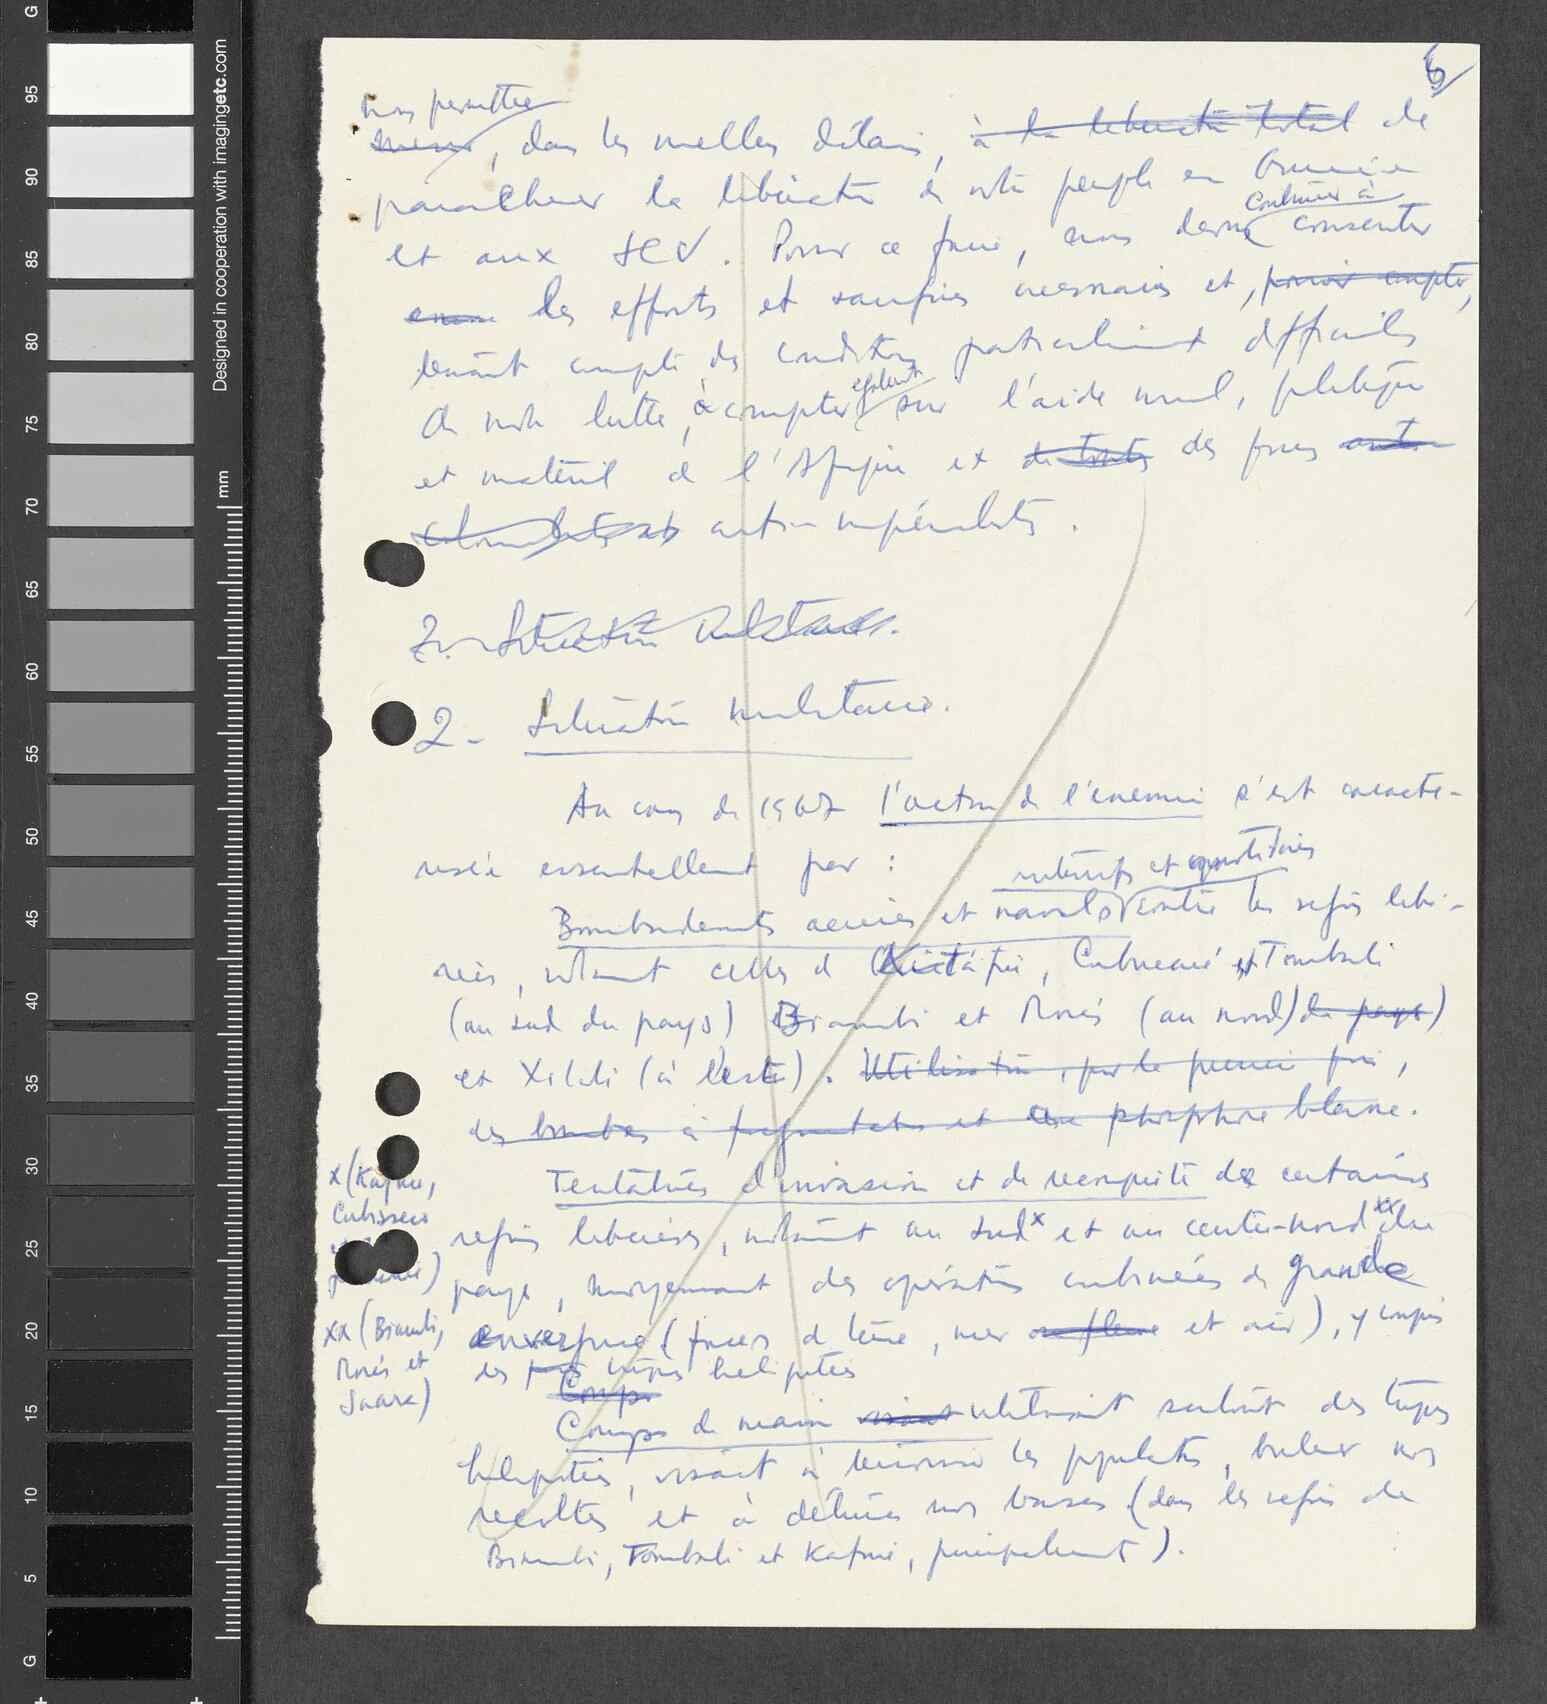 6
nous permettre
dans les meilleurs délais, à la libération totale de
parachever la libération de notre peuple en Guinée
continuer à
et aux ICV. Pour ce faire, nous devons consentir
encore les efforts et sacrifices nécessaires et, pouvoir compter,
tenant compte des conditions particulièrement difficiles
également
de notre lutte, à compter sur l'aide morale, politique
et matériel de l'Afrique et de toutes des forces anti-
anti-impérialistes.
2. Situation militaire.
2 - Situation militaire.
Au cours de 1967 l'action de l'ennemi s'est caracté-
risée essentiellement par :
intensifs et quotidiens
Bombardements aériens et navals contre les régions libé-
rées, notamment celles de Quitáfine, Cubucaré et Tombali
(au sud du pays) Biambi et Morés (au nord) du pays)
et Xitoli (à l'este). Utilisation, pour la première fois,
des bombes à fragmentation et au phosphore blanc.
Tentatives d'invasion et de reconquête de certaines
x (Kafine,
Cubisseco
régions libérées, notamment au sud x et au centre-nord xx du
pays, moyennant des opérations combinées de grande
xx (Biambi,
Morés et
Saara)
envergure (forces de terre, mer ou fleuve et air), y compris
des troupes héliportées
Coups
Coups de main utilisant surtout des troupes
héliportées, visant à terroriser les populations, brûler nos
récoltes et à détruire nos bases (dans les régions de
Biambi, Tombali et Kafine, principalement).
G
95
90
85
80
75
70
65
60
55
50
45
40
35
30
25
20
15
10
5
G
mm
Designed in cooperation with imagingetc.com